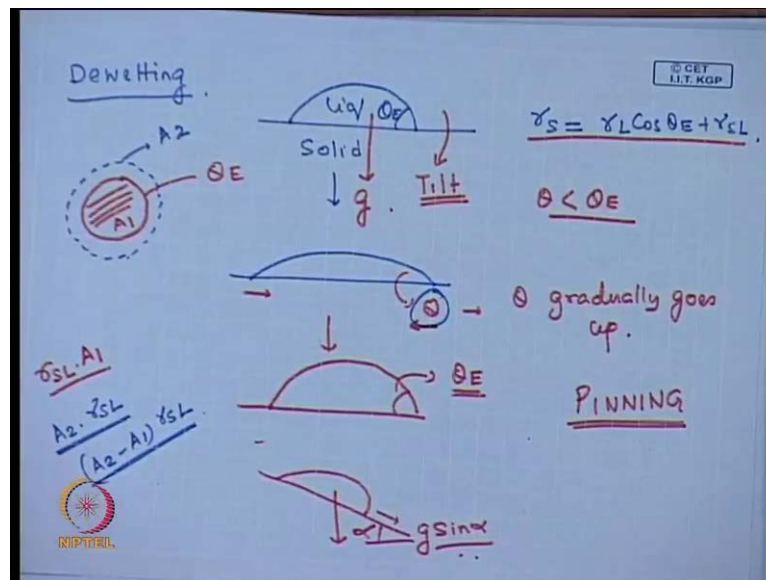 Dewetting.
© CET
I.I.T. KGP
A2
θE
A1
Liq θE
Solid
g.
Tilt
γS = γL Cos θE + γSL.
θ < θE
θ
θ gradually goes
up.
θE
PINNING
γSL.A1
A2.γSL
(A2-A1) γSL.
α
g sinα
NPTEL